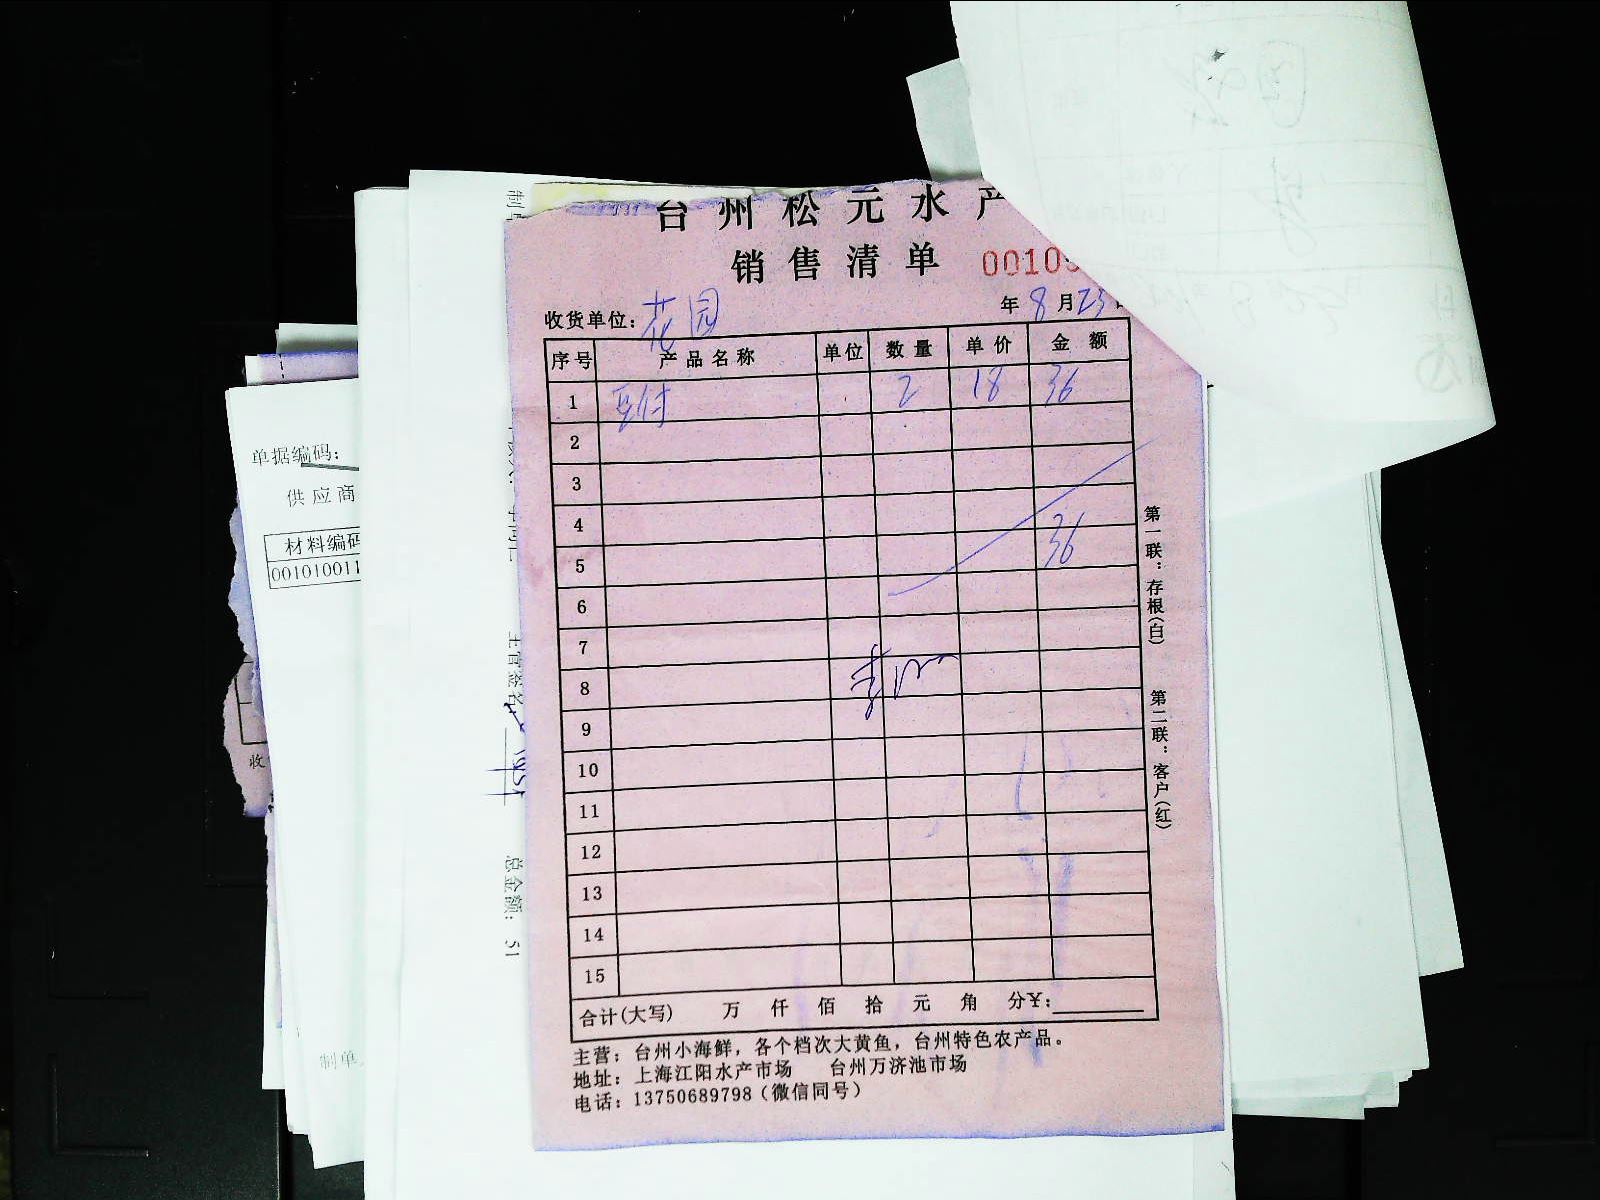 台州松元水产
销售清单 0010
收货单位：花园 年8月23日
序号 产品名称 单位 数量 单价 金额
1 豆付 2 18 36
2
3
4
5 36
6
7
8
9
10
11
12
13
14
15
合计(大写) 万 仟 佰 拾 元 角 分¥：
主营：台州小海鲜，各个档次大黄鱼，台州特色农产品。
地址：上海江阳水产市场 台州万济池市场
电话：13750689798（微信同号）
第一联：存根(白)
第二联：客户(红)
单据编码：
供应商
材料编码
001010011
制单
主管签名：
总金额：51
收